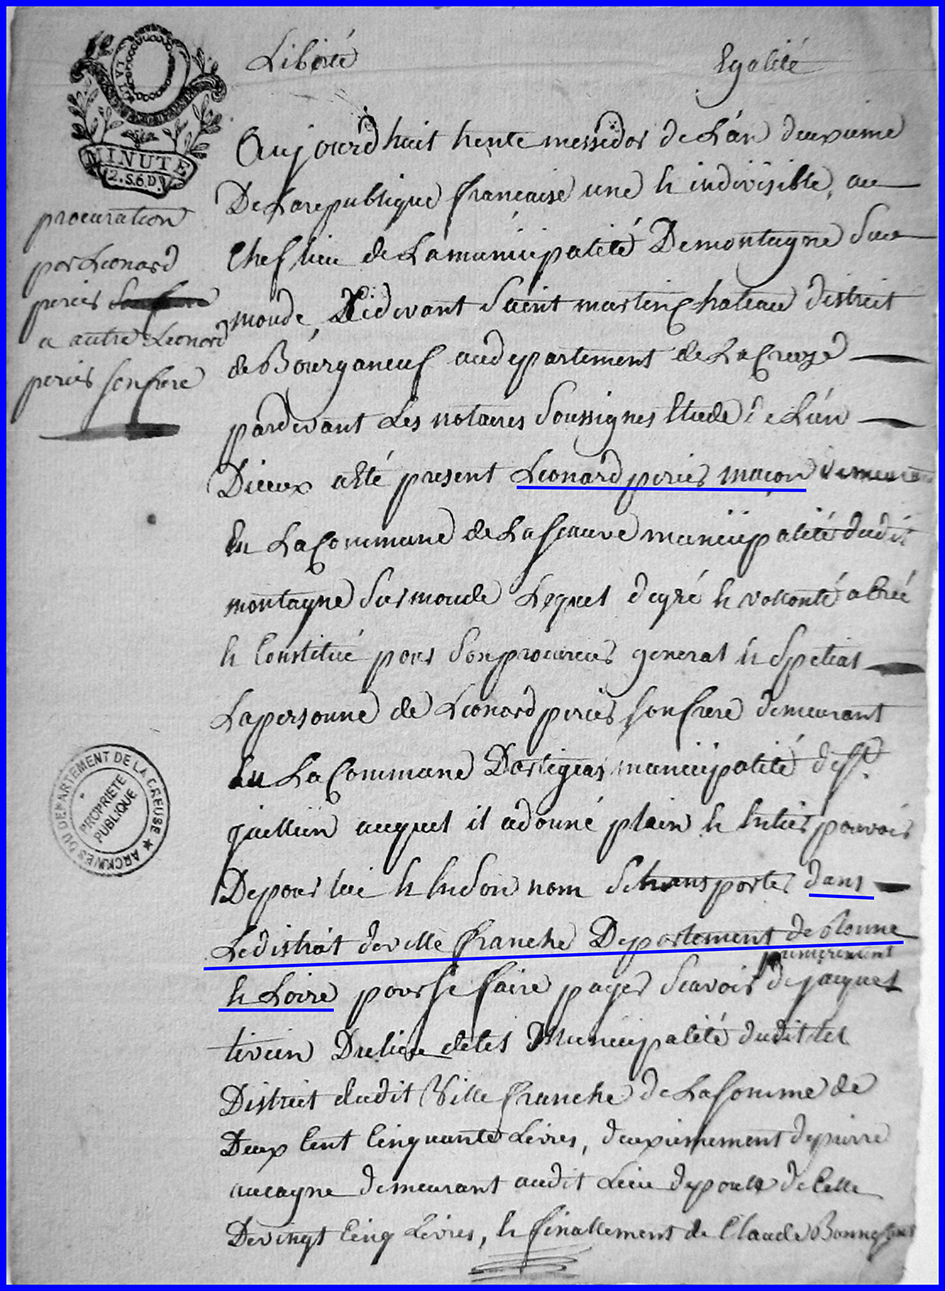 Liberté Egalité
MINUTE
2.S.6D.
procuration
par Leonard
periés
a autre Leonard
periés son frere
Aujourd huit trente messidor de L'an deuxieme
De Larepublique française une et indivisible, au
Chef lieu de Lamunicipalité Demontagne sur
moude, Cidevant Saint martinchateau district
de Bourganeuf audepartement de La Creuze
pardevant Les notaires Soussignes Etude de L'un
Dieux a êté present Leonard periés maçon demeurant
En La Commune de La feauve municipalité dudit
montagne Sur moude Lequel degré et vollonté a créé
et Constitué pour Son procureur general et Spécial
Lapersonne de Leonard periés son frere demeurant
En La Commune Dartigeas municipalité de St.
quellien auquel il adonné plain et entier pouvoir
De pour lui et en son nom se transporter dans
Le district de ville franche Departement de Ronne
et Loire pour se faire payer Scavoir premierement de jacques
Dulieu municipalité dudit
District dudit Ville franche de La somme de
Deux Cent Cinquante Livres, deuxiemement de pierre
aucagne demeurant audit Lieu de Celle
De vingt Cinq Livres, et finallement de Claude
ARCHIVES DU DÉPARTEMENT DE LA CREUSE
PROPRIÉTÉ
PUBLIQUE